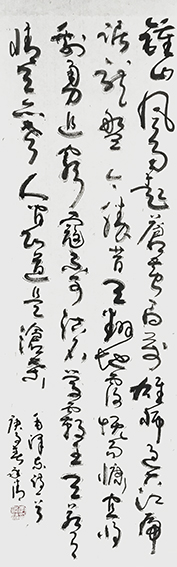 鍾山風雨起蒼黃百萬雄師過大江虎
踞龍盤今勝昔天翻地覆慨而慷宜將
剩勇追窮寇不可沽名學霸王天若有
情天亦老人間正道是滄桑
毛澤東詩
庚寅春